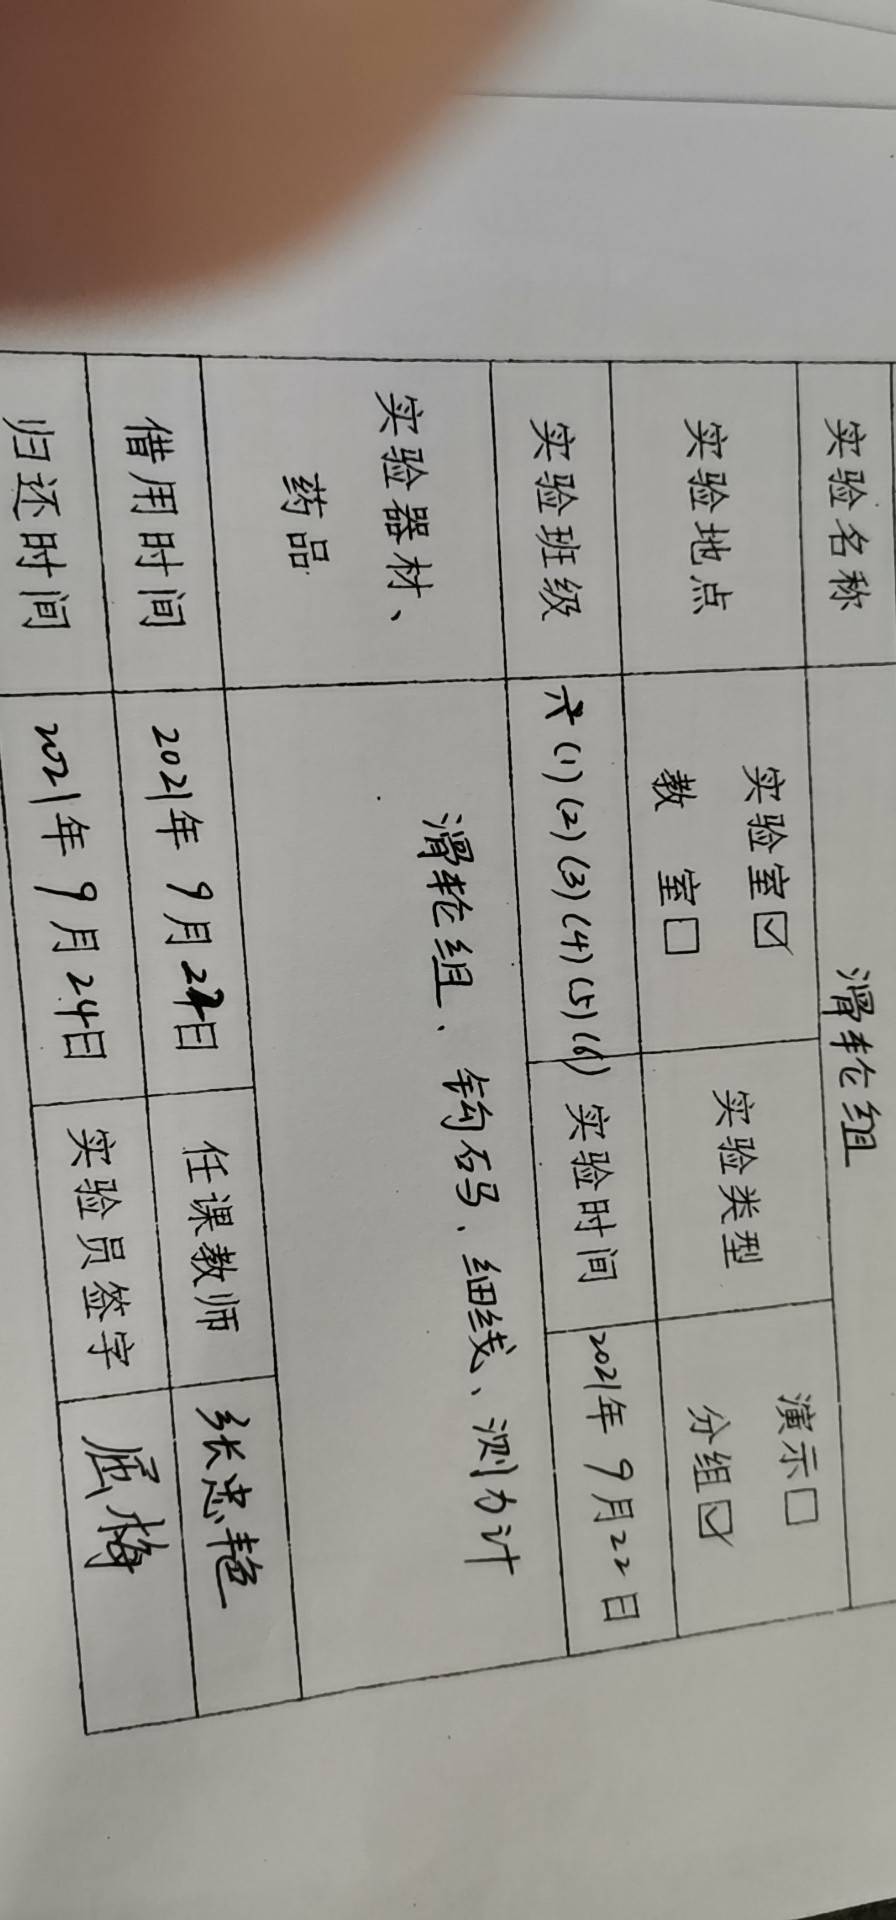 实验名称 滑轮组
实验地点 实验室☑ 教 室☐ 实验类型 演示☐ 分组☑
实验班级 六(1)(2)(3)(4)(5)(6) 实验时间 2021年9月22日
实验器材、药品 滑轮组、钩码、细线、测力计
借用时间 2021年9月22日 任课教师 张忠艳
归还时间 2021年9月24日 实验员签字 屈梅